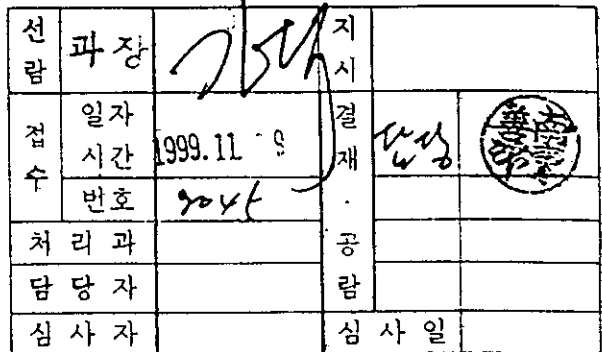 선람 과장 지시
접수 일자 시간 1999. 11. 9 결재 담당
번호
처리과 공람
담당자
심사자 심사일